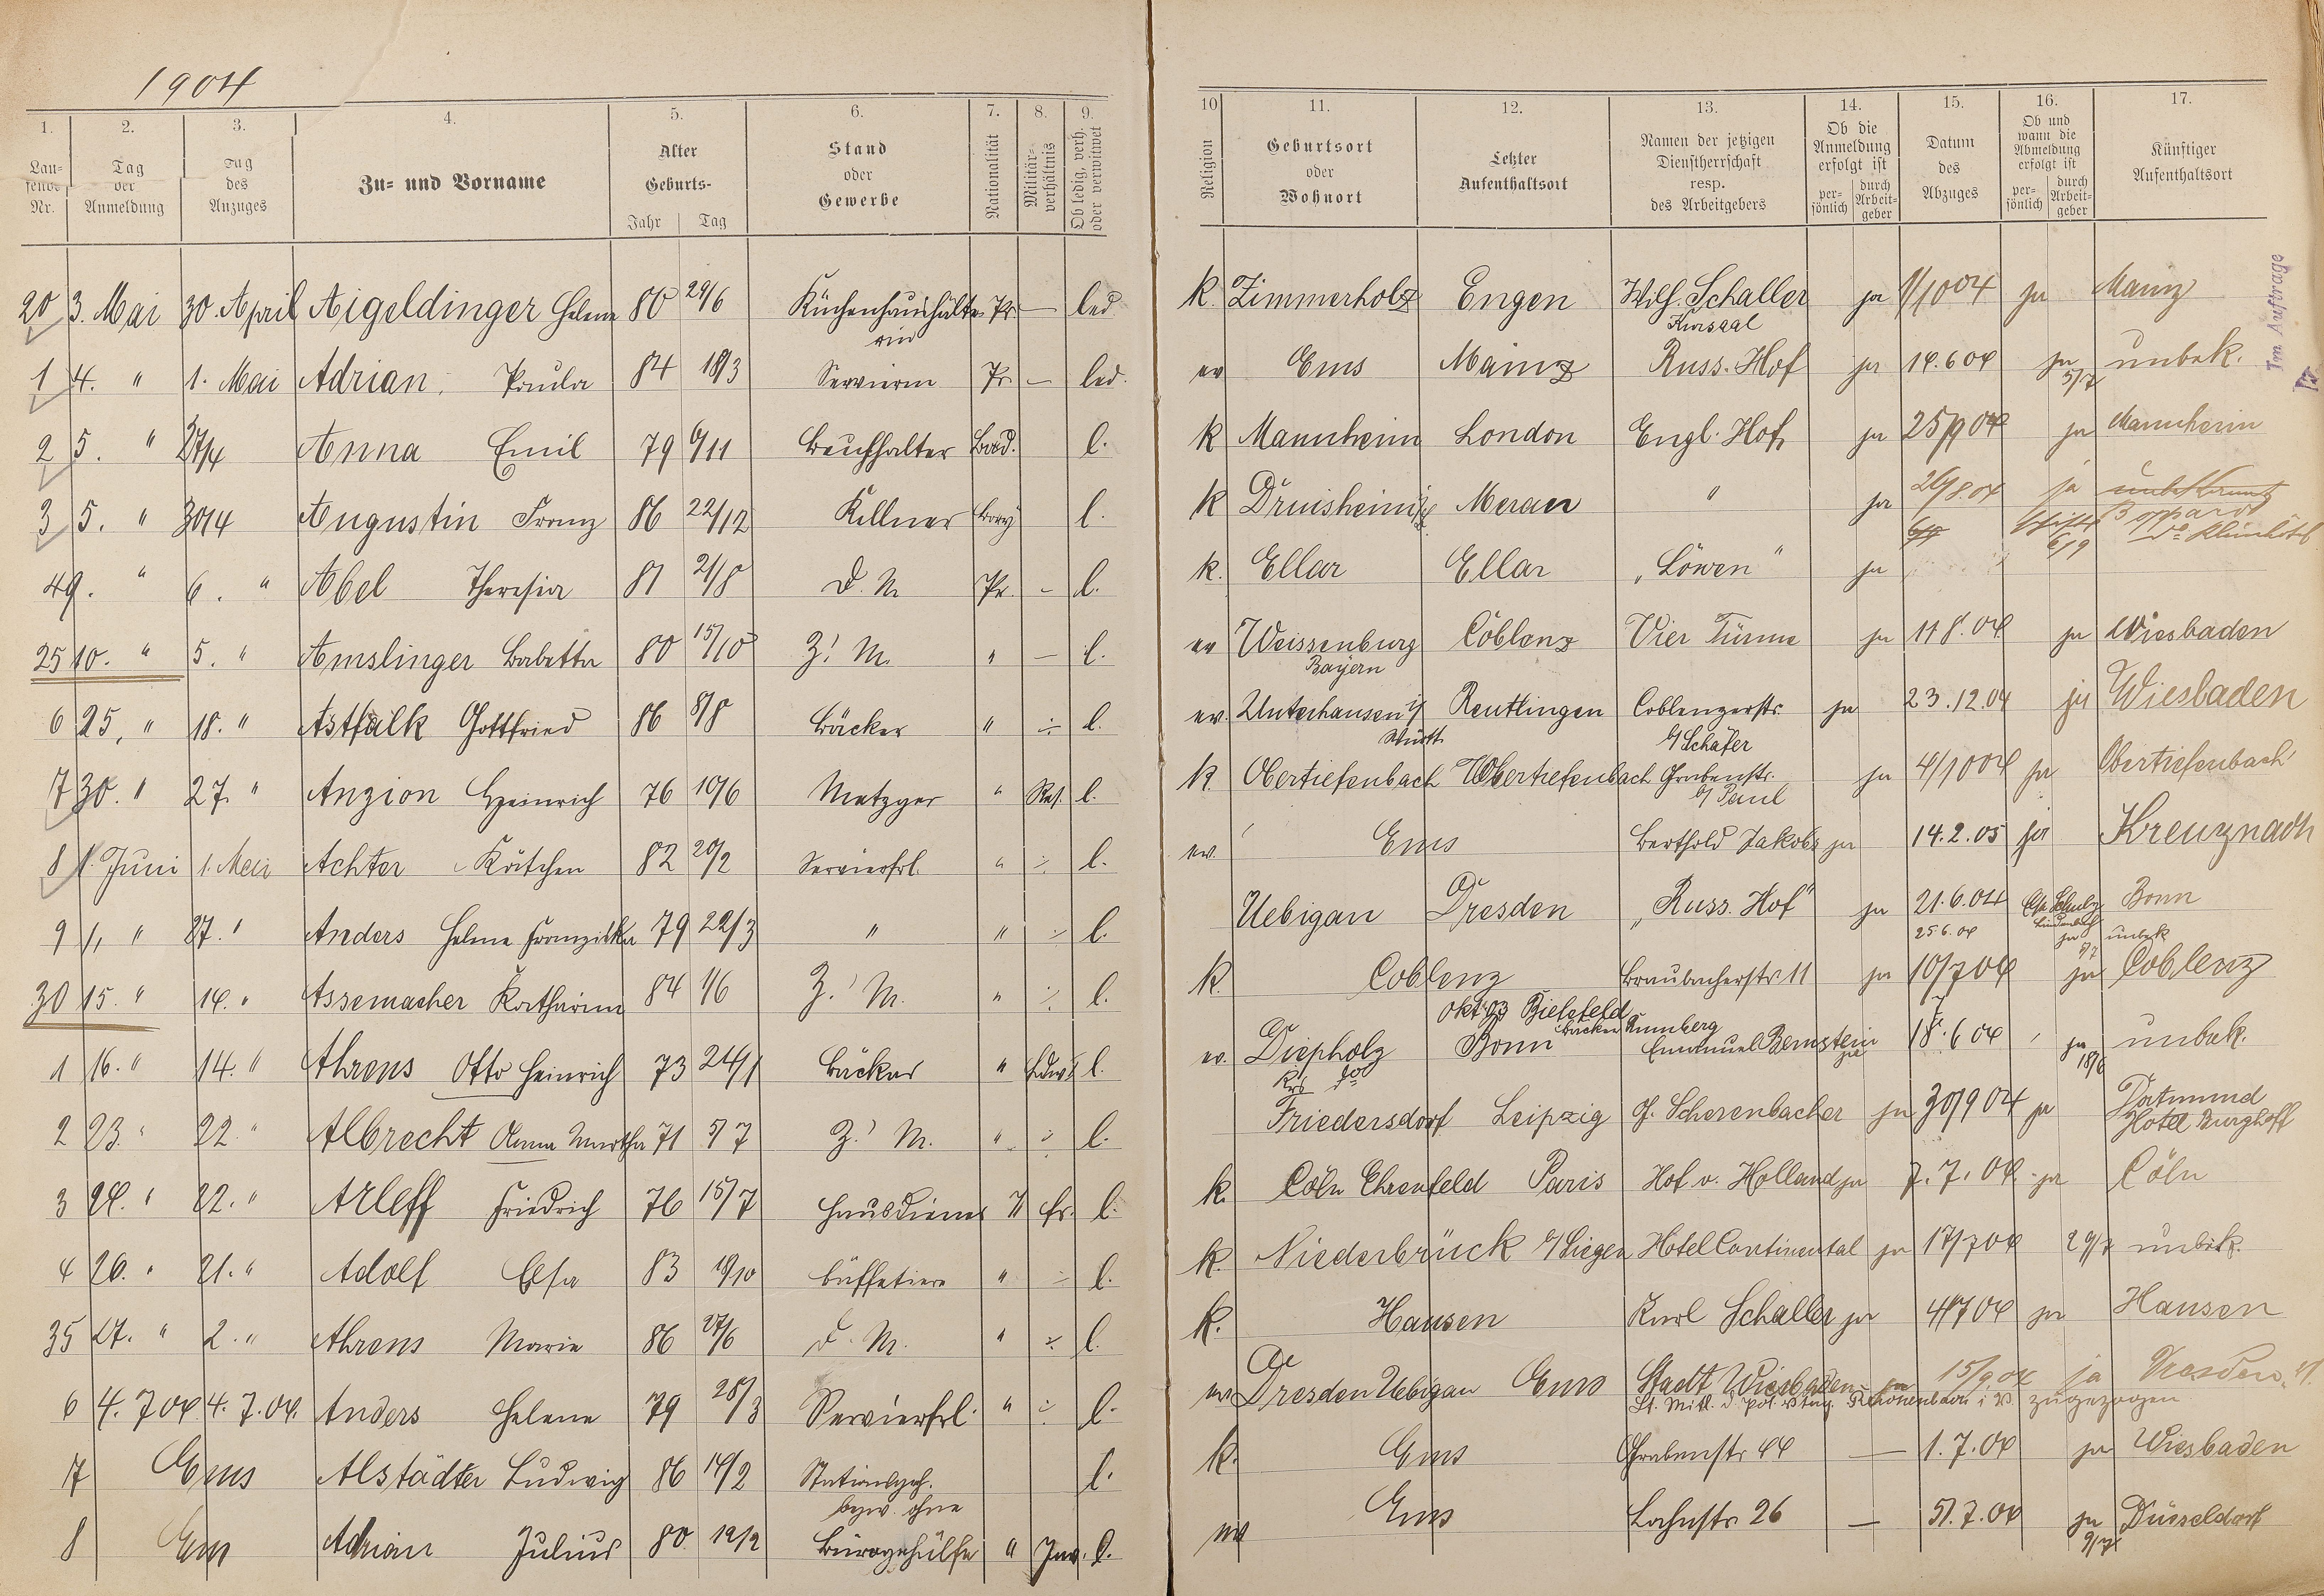 1904
1. 2. 3. 4. 5. 6. 7. 8. 9. 10 11. 12. 13. 14. 15. 16. 17.
Laufende Nr.
Tag der Anmeldung
Tag des Anzuges
Zu- und Vorname
Alter
Geburts-
Jahr Tag
Stand oder Gewerbe
Nationalität
Militärverhältnis
Ob ledig, verh. oder verwitwet
Religion
Geburtsort oder Wohnort
Letzter Aufenthaltsort
Namen der jetzigen Dienstherrschaft resp. des Arbeitgebers
Ob die Anmeldung erfolgt ist
persönlich durch Arbeitgeber
Datum des Abzuges
Ob und wann die Abmeldung erfolgt ist
persönlich durch Arbeitgeber
Künftiger Aufenthaltsort
Im Auftrage
20 3. Mai 30. April Aigeldinger Helene 80 29/6 Küchenhaushälterin Pr. — led k. Zimmerholz Engen Wilh. Schaller Kursaal ja 1/10 04 ja Mainz
1 4. " 1. Mai Adrian Paula 84 18/3 Servierin Pr. — led. ev Ems Mainz Russ. Hof ja 14.6 04 ja 5/7 unbek.
2 5. " 27/4 Anna Emil 79 6/11 Buchhalter Bad. l. k Mannheim London Engl. Hof ja 25/9 04 ja Mannheim
3 5. " 30/4 Augustin Franz 86 22/12 Kellner Bay l. k Druisheim Meran " ja 26/8.04 ja unbekannt Boppard
4 9. " 6. " Abel Theresia 81 21/8 D. M. Pr. - l. k. Ellar Ellar „Löwen" ja
25 10. " 5. " Amslinger Babetta 80 15/10 Z. M. " — l. ev Weissenburg Bayern Coblenz Vier Türme ja 11 8.04 ja Wiesbaden
6 25. " 18. " Astfalk Gottfried 86 8/8 Bäcker " ÷ l. ev. Unterhausen Württ. Reutlingen Coblenzerstr. b/ Schäfer ja 23.12.04 ja Wiesbaden
7 30. " 27. " Anzion Heinrich 76 10/6 Metzger " Res. l. k. Obertiefenbach Obertiefenbach Grabenstr. b/ Paul ja 4/10 04 ja Obertiefenbach
8 1. Juni 1. Mai Achter Kätchen 82 20/2 Servierfrl. " ÷ l. ev. Ems Berthold Jakobs ja 14.2.05 ja Kreuznach
9 1. " 27. " Anders Helene Franziska 79 22/3 " " ÷ l. Uebigau Dresden „Russ. Hof" ja 21.6.04 25.6.04 ja Bonn unbek
30 15. " 14. " Assemacher Katharina 84 1/6 Z. M. " ÷ l. k. Coblenz Braubacherstr. 11 ja 10/7 04 ja Coblenz
1 16. " 14. " Ahrens Otto Heinrich 73 24/1 Bäcker " Ldw. l. ev. Diepholz Okt. 03 Bielefeld Bonn Emanuel Bernstein 18.6 04 ja 18/6 unbek.
2 23. " 22. " Albrecht Anna Martha 71 5/7 Z. M. " ÷ l. Friedersdorf Leipzig G. Scherenbacher ja 30/9 04 ja Dortmund Hotel Burghoff
3 24. " 22. " Arleff Friedrich 76 15/7 Hausdiener " Er. l. k. Cöln Ehrenfeld Paris Hof v. Holland ja 7.7.04 ja Cöln
4 26. " 21. " Adolf Elsa 83 19/10 Büffetiere " ÷ l. k. Niederbrück b/ Siegen Hotel Continental ja 17/7 04 29/7 unbek.
35 27. " 2. " Ahrens Marie 86 27/6 D. M. " ÷ l. k. Hausen Karl Schaller ja 4/7 04 ja Hausen
6 4.7.04. 4.7.04. Anders Helene 79 28/3 Servierfrl. " ÷ l. ev. Dresden Uebigau Ems Stadt Wiesbaden ja 15/9 04 ja Dresden
zugezogen
7 Ems Alstädter Ludwig 86 14/2 Stationsgeh. l. k. Ems Grabenstr. 44 — 1.7.04 ja Wiesbaden
8 Ems Adrian Julius 80 12/2 bezw. ohne Bürogehülfe " Inv. l. ev Ems Lahnstr. 26 — 5/.7.04 ja 9/7 Düsseldorf